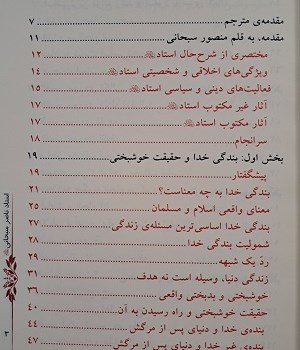 مقدمه‌ی مترجم ۷
مقدمه، به قلم منصور سبحانی ۱۱
مختصری از شرح‌حال استاد ۱۲
ویژگی‌های اخلاقی و شخصیتی استاد ۱۴
فعالیت‌های دینی و سیاسی استاد ۱۵
آثار غیر مکتوب استاد ۱۷
آثار مکتوب استاد ۱۷
سرانجام ۱۸
بخش اول: بندگی خدا و حقیقت خوشبختی ۱۹
پیشگفتار ۱۹
بندگی خدا به چه معناست؟ ۲۱
معنای واقعی اسلام و مسلمان ۲۵
بندگی خدا اساسی‌ترین مسئله‌ی زندگی ۲۷
شمولیت بندگی خدا ۲۸
ردّ یک شبهه ۲۹
زندگی دنیا، وسیله است نه هدف ۳۱
خوشبختی و بدبختی واقعی ۳۹
حقیقت خوشبختی و راه رسیدن به آن ۴۰
بنده‌ی خدا و دنیای پس از مرگش ۴۴
بنده‌ی غیر خدا و دنیای پس از مرگش ۴۷
استاد ناصر سبحانی
۳